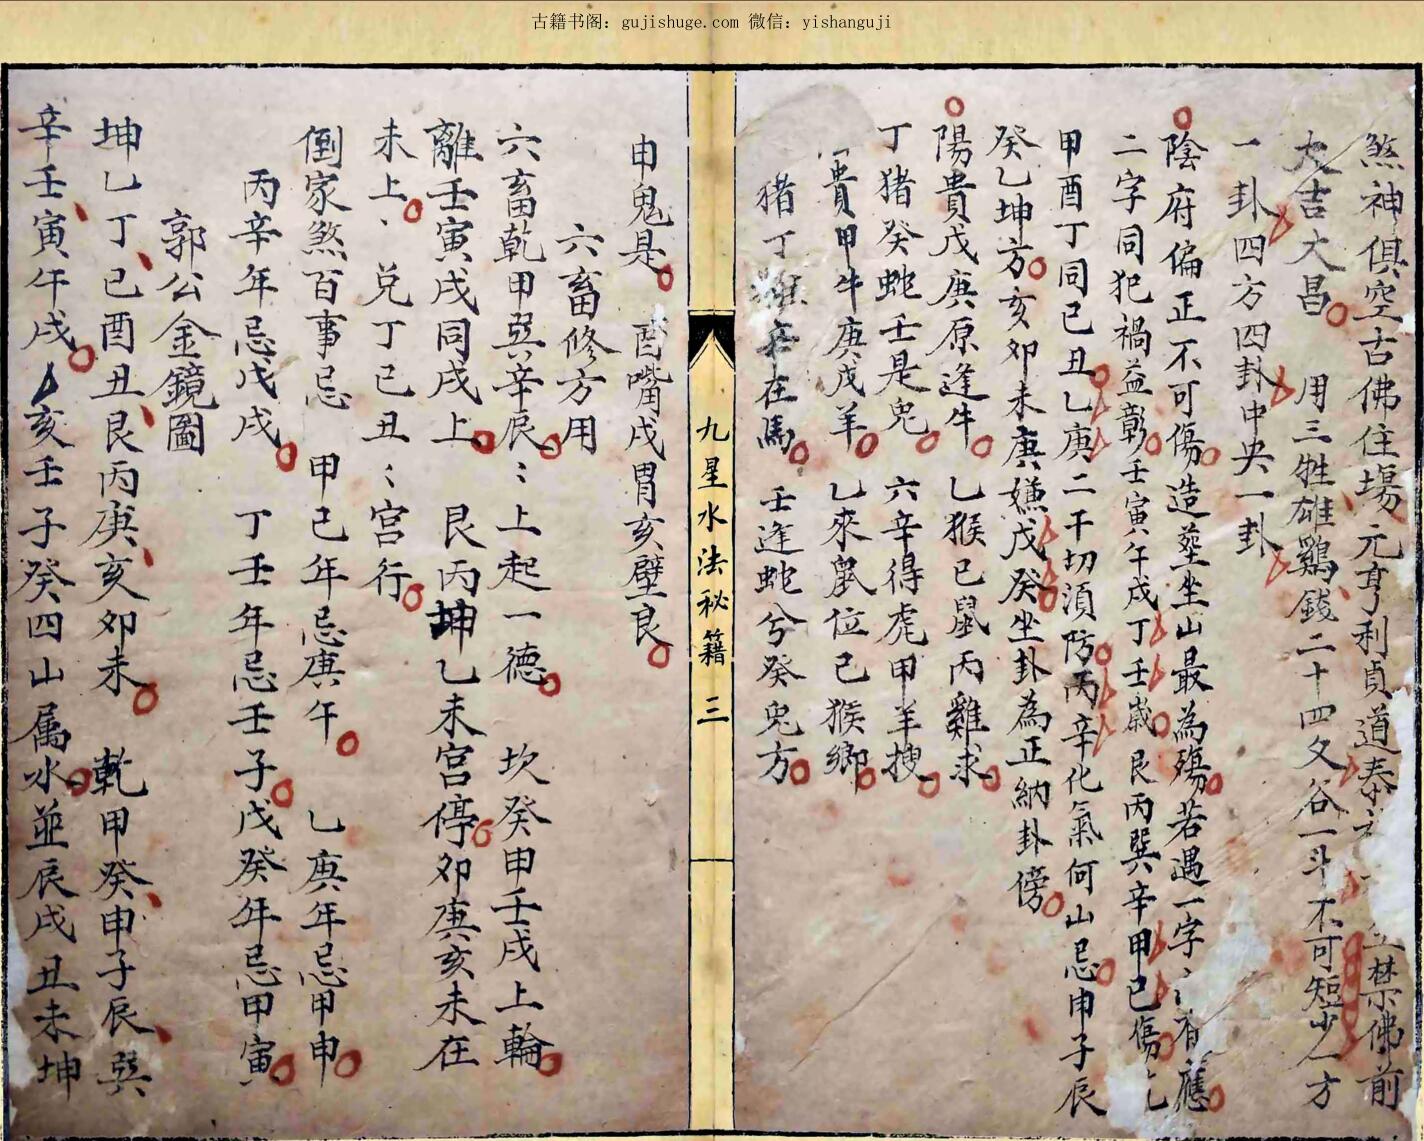 古籍书阁：gujishuge.com 微信：yishanguji
煞神俱空古佛住場元亨利貞道泰禁佛前
大吉大昌 用三牲雄鷄錢二十四文谷一斗不可短少一方
一卦四方四卦中央一卦
陰府偏正不可傷造塟坐山最為殤若遇一字〻有應
二字同犯禍益彰壬寅午戌丁壬歲艮丙巽辛甲已傷
甲酉丁同已丑乙庚二干切須防丙辛化氣何山忌申子辰
癸乙坤方亥卯未庚嫌戊癸坐卦為正納卦傍
陽貴戊庚原逢牛 乙猴已鼠丙雞求
丁猪癸蛇壬是兎 六辛得虎甲羊搜
貴甲牛庚戊羊 乙來鼠位已猴鄉
猪丁在馬 壬逢蛇兮癸兎方
九星水法秘籍 三
申鬼是 酉嘴戌胃亥壁良
六畜修方用
六畜乾甲巽辛辰〻上起一德 坎癸申壬戌上輪
離壬寅戌同戌上 艮丙坤乙未宮停卯庚亥未在
未上、兑丁已丑〻宮行
倒家煞百事忌 甲己年忌庚午 乙庚年忌甲申
丙辛年忌戊戌 丁壬年忌壬子戊癸年忌甲寅
郭公金鏡圖
坤乙丁已酉丑艮丙庚亥卯未 乾甲癸申子辰巽
辛壬寅午戌亥壬子癸四山属水並辰戌丑未坤